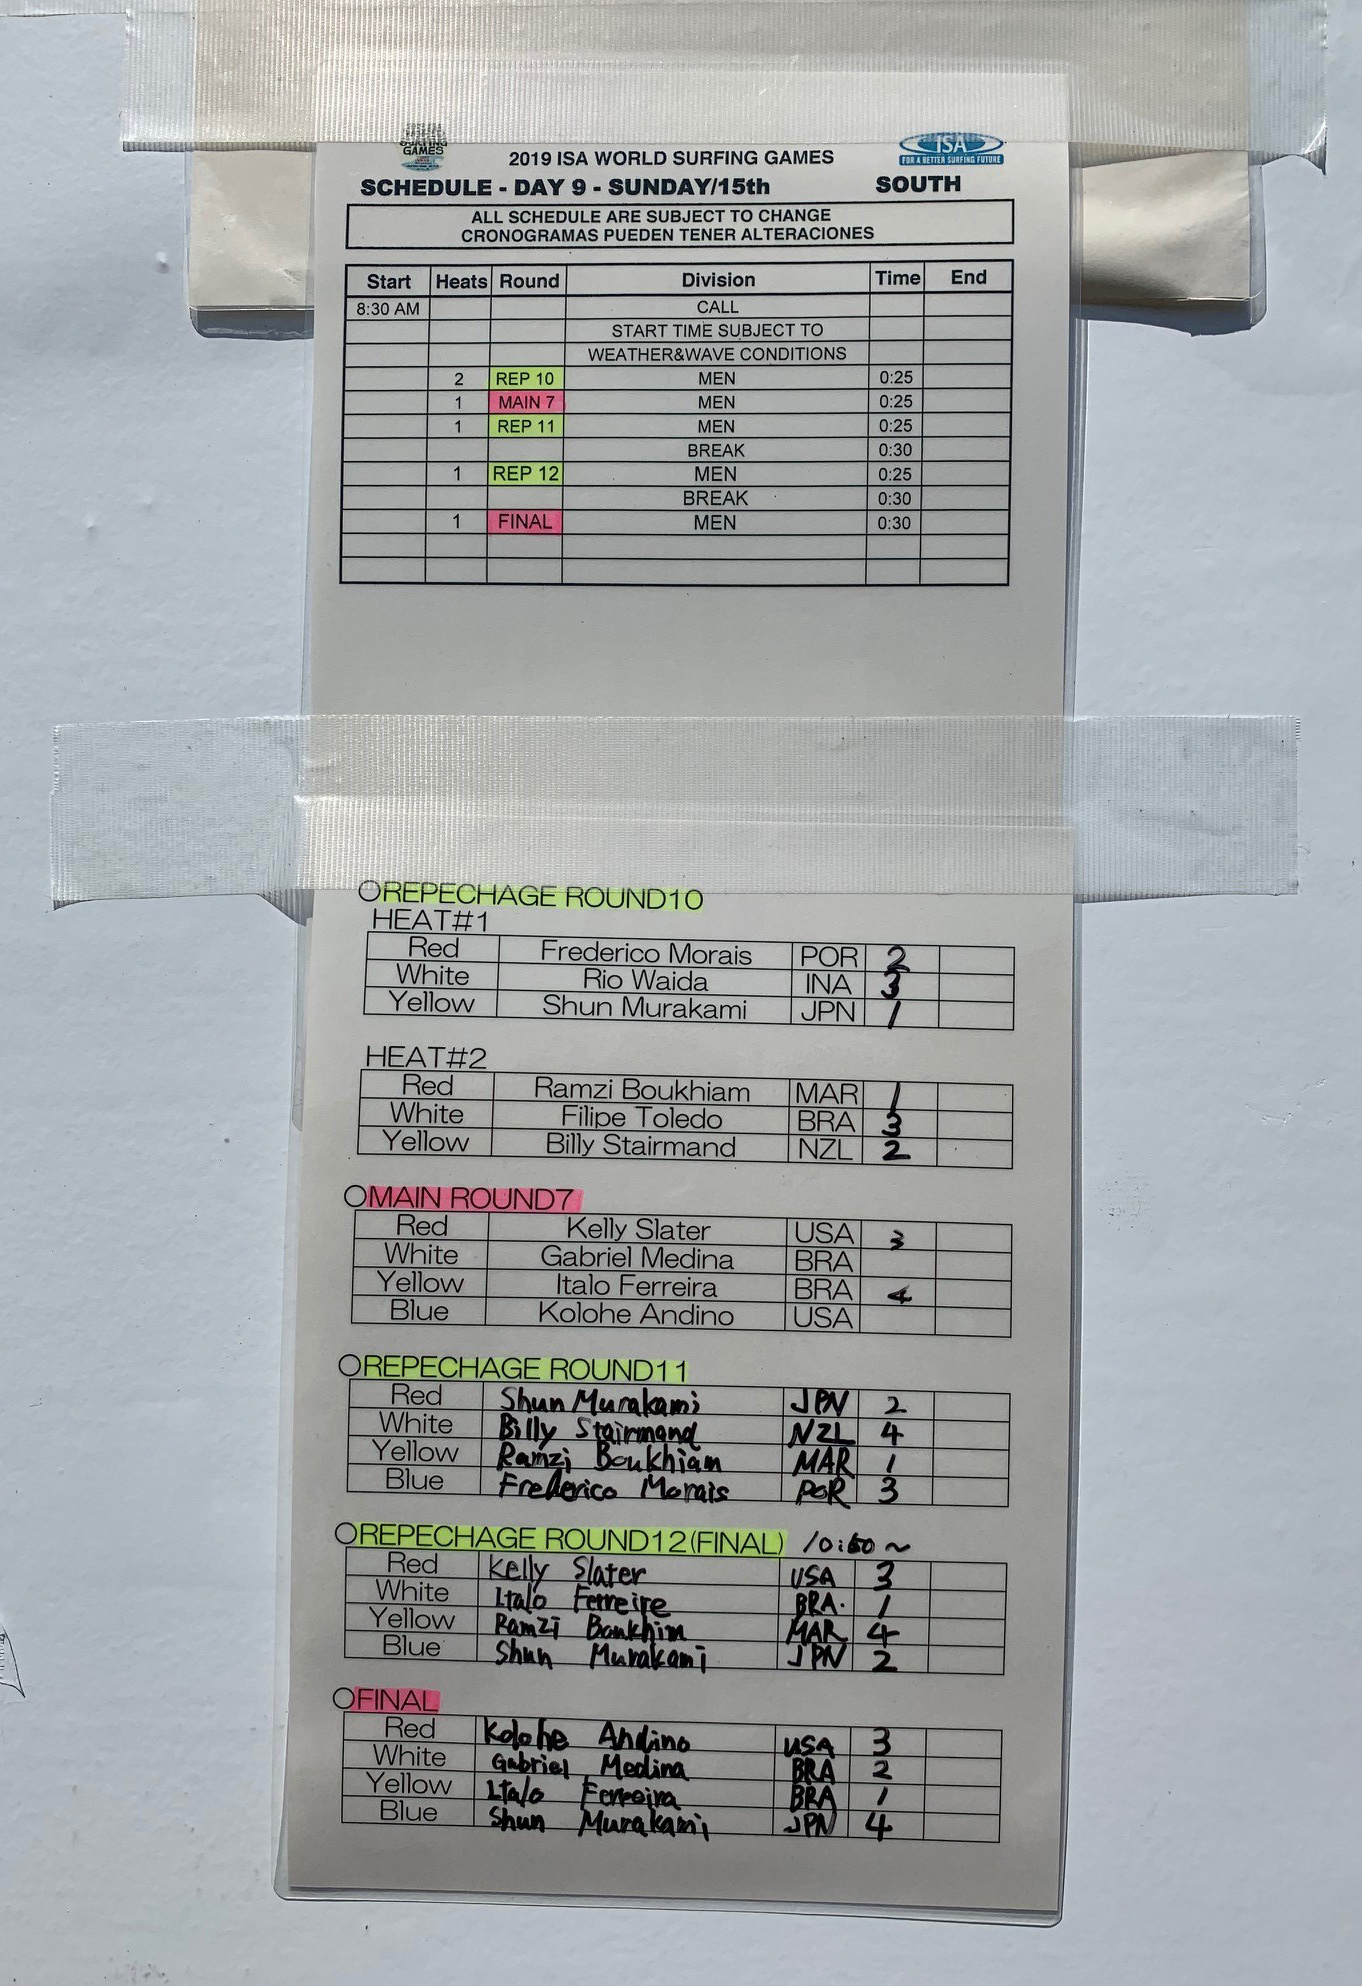 SURFING
GAMES
2019 ISA WORLD SURFING GAMES
ISA
FOR A BETTER SURFING FUTURE
SCHEDULE - DAY 9 - SUNDAY/15th SOUTH
ALL SCHEDULE ARE SUBJECT TO CHANGE
CRONOGRAMAS PUEDEN TENER ALTERACIONES
Start Heats Round Division Time End
8:30 AM CALL
START TIME SUBJECT TO
WEATHER&WAVE CONDITIONS
2 REP 10 MEN 0:25
1 MAIN 7 MEN 0:25
1 REP 11 MEN 0:25
BREAK 0:30
1 REP 12 MEN 0:25
BREAK 0:30
1 FINAL MEN 0:30
○REPECHAGE ROUND10
HEAT#1
Red Frederico Morais POR 2
White Rio Waida INA 3
Yellow Shun Murakami JPN 1
HEAT#2
Red Ramzi Boukhiam MAR 1
White Filipe Toledo BRA 3
Yellow Billy Stairmand NZL 2
○MAIN ROUND7
Red Kelly Slater USA 3
White Gabriel Medina BRA
Yellow Italo Ferreira BRA 4
Blue Kolohe Andino USA
○REPECHAGE ROUND11
Red Shun Murakami JPN 2
White Billy Stairmand NZL 4
Yellow Ramzi Boukhiam MAR 1
Blue Frederico Morais POR 3
○REPECHAGE ROUND12(FINAL)
Red Kelly Slater USA 3
White Italo Ferreire BRA. 1
Yellow Ramzi Boukhim MAR 4
Blue Shun Murakami JPN 2
○FINAL
Red Kolohe Andino USA 3
White Gabriel Medina BRA 2
Yellow Italo Ferreira BRA 1
Blue Shun Murakami JPN 4